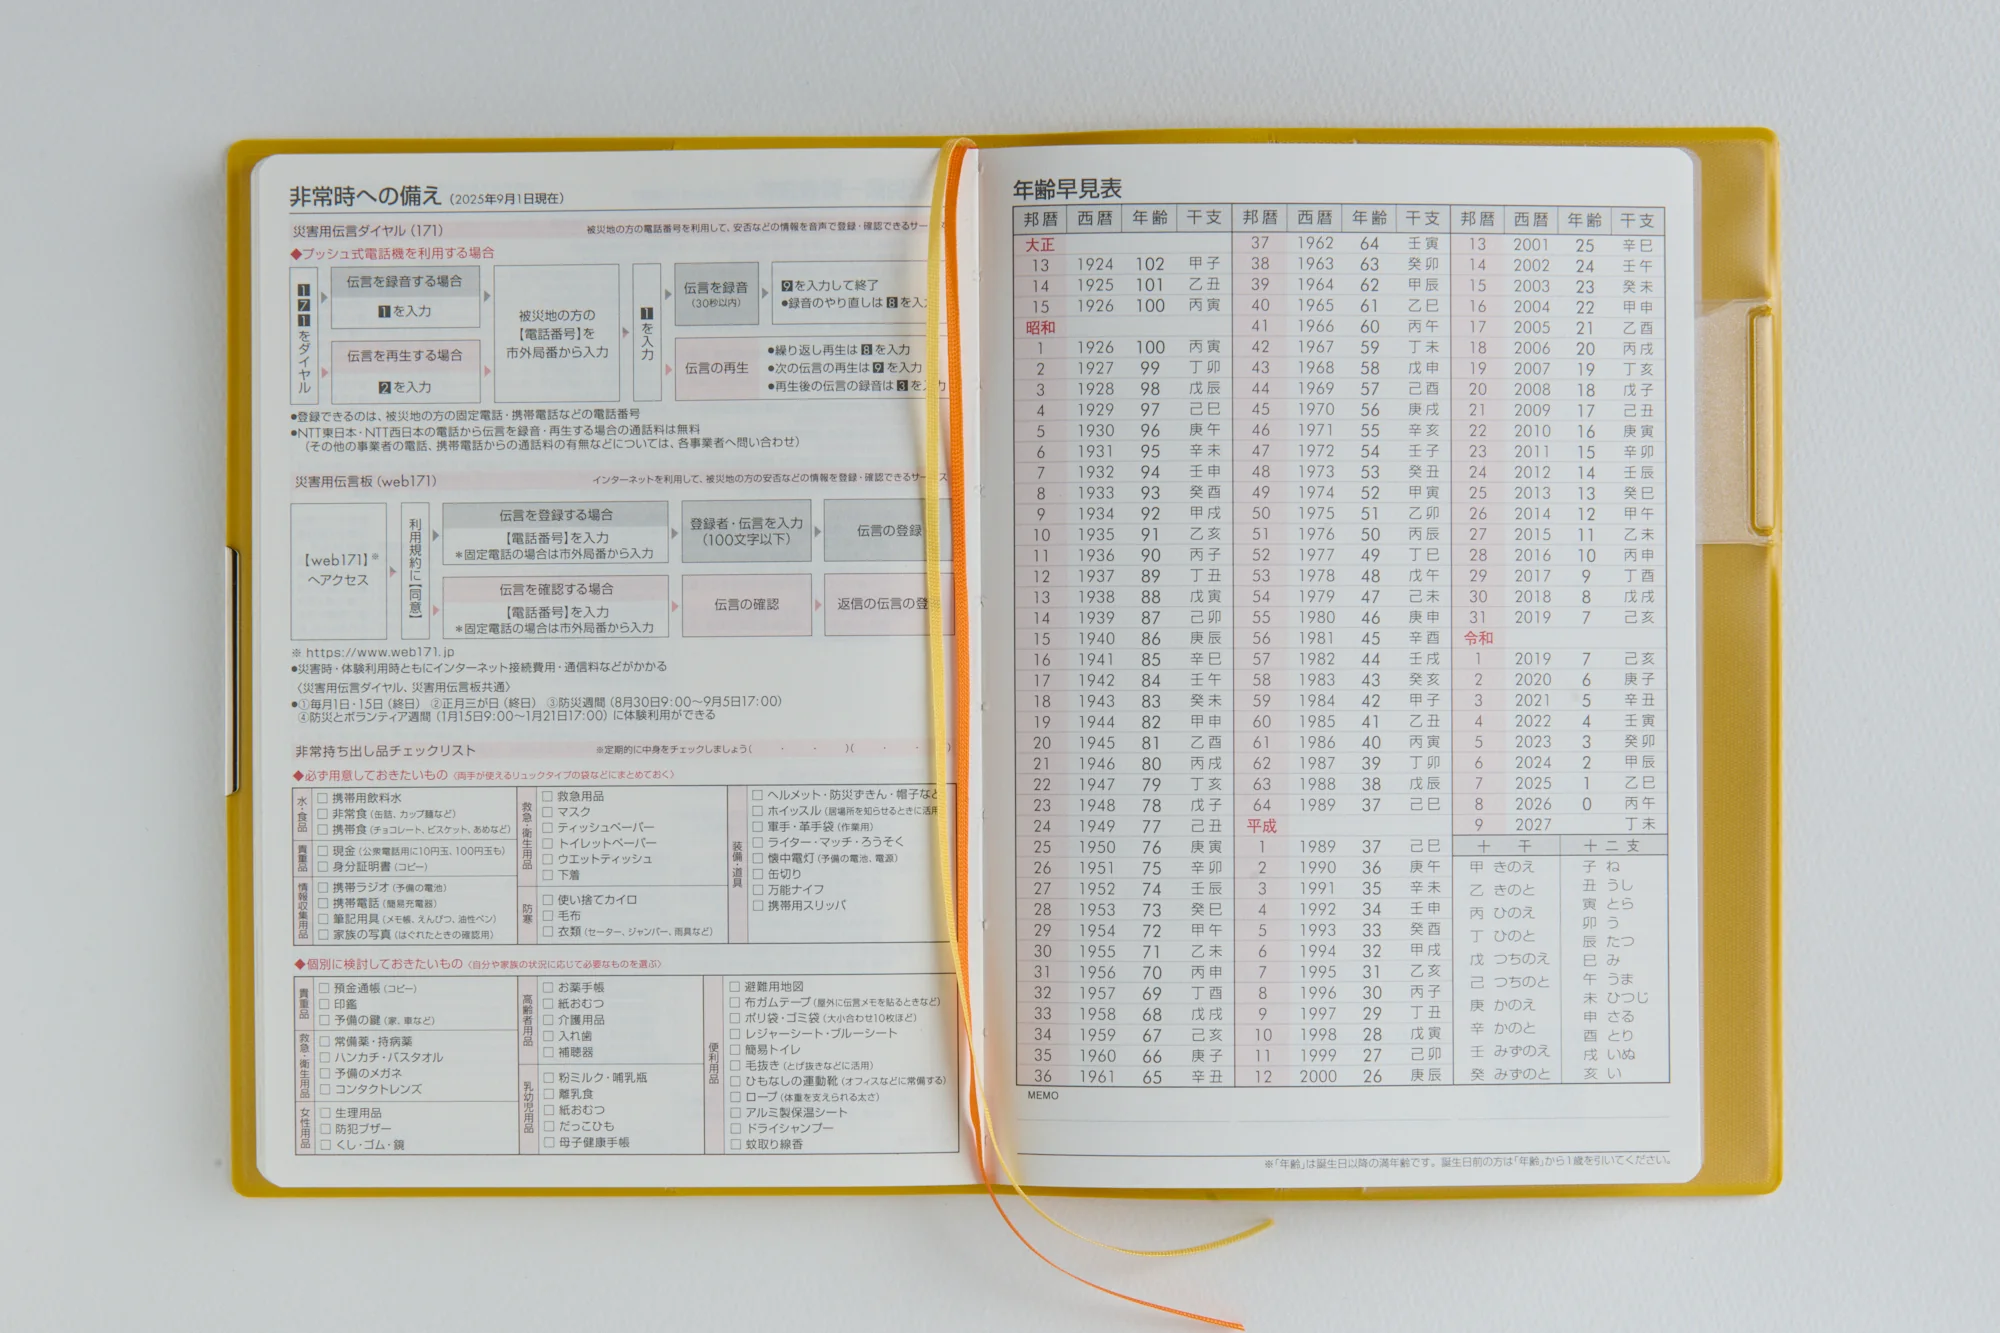 非常時への備え（2025年9月1日現在）
災害用伝言ダイヤル（171） 被災地の方の電話番号を利用して、安否などの情報を音声で登録・確認できるサー
◆プッシュ式電話機を利用する場合
171をダイヤル
伝言を録音する場合
1を入力
伝言を再生する場合
2を入力
被災地の方の
【電話番号】を
市外局番から入力
1を入力
伝言を録音
（30秒以内）
9を入力して終了
●録音のやり直しは8を入
伝言の再生
●繰り返し再生は8を入力
●次の伝言の再生は9を入力
●再生後の伝言の録音は3を入
●登録できるのは、被災地の方の固定電話・携帯電話などの電話番号
●NTT東日本・NTT西日本の電話から伝言を録音・再生する場合の通話料は無料
（その他の事業者の電話、携帯電話からの通話料の有無などについては、各事業者へ問い合わせ）
災害用伝言板（web171） インターネットを利用して、被災地の方の安否などの情報を登録・確認できるサー
【web171】※
へアクセス
利用規約に【同意】
伝言を登録する場合
【電話番号】を入力
＊固定電話の場合は市外局番から入力
登録者・伝言を入力
（100文字以下）
伝言の登録
伝言を確認する場合
【電話番号】を入力
＊固定電話の場合は市外局番から入力
伝言の確認
返信の伝言の登
※ https://www.web171.jp
●災害時・体験利用時ともにインターネット接続費用・通信料などがかかる
〈災害用伝言ダイヤル、災害用伝言板共通〉
●①毎月1日・15日（終日） ②正月三が日（終日） ③防災週間（8月30日9:00〜9月5日17:00）
④防災とボランティア週間（1月15日9:00〜1月21日17:00）に体験利用ができる
非常持ち出し品チェックリスト ※定期的に中身をチェックしましょう（ ・ ・ ）（ ・ ・ ）
◆必ず用意しておきたいもの〈両手が使えるリュックタイプの袋などにまとめておく〉
水・食品
□携帯用飲料水
□非常食（缶詰、カップ麺など）
□携帯食（チョコレート、ビスケット、あめなど）
貴重品
□現金（公衆電話用に10円玉、100円玉も）
□身分証明書（コピー）
情報収集用品
□携帯ラジオ（予備の電池）
□携帯電話（簡易充電器）
□筆記用具（メモ帳、えんぴつ、油性ペン）
□家族の写真（はぐれたときの確認用）
救急・衛生用品
□救急用品
□マスク
□ティッシュペーパー
□トイレットペーパー
□ウエットティッシュ
□下着
防寒
□使い捨てカイロ
□毛布
□衣類（セーター、ジャンパー、雨具など）
装備・道具
□ヘルメット・防災ずきん・帽子など
□ホイッスル（居場所を知らせるときに活用
□軍手・革手袋（作業用）
□ライター・マッチ・ろうそく
□懐中電灯（予備の電池、電源）
□缶切り
□万能ナイフ
□携帯用スリッパ
◆個別に検討しておきたいもの〈自分や家族の状況に応じて必要なものを選ぶ〉
貴重品
□預金通帳（コピー）
□印鑑
□予備の鍵（家、車など）
救急・衛生用品
□常備薬・持病薬
□ハンカチ・バスタオル
□予備のメガネ
□コンタクトレンズ
女性用品
□生理用品
□防犯ブザー
□くし・ゴム・鏡
高齢者用品
□お薬手帳
□紙おむつ
□介護用品
□入れ歯
□補聴器
乳幼児用品
□粉ミルク・哺乳瓶
□離乳食
□紙おむつ
□だっこひも
□母子健康手帳
便利用品
□避難用地図
□布ガムテープ（屋外に伝言メモを貼るときなど）
□ポリ袋・ゴミ袋（大小合わせ10枚ほど）
□レジャーシート・ブルーシート
□簡易トイレ
□毛抜き（とげ抜きなどに活用）
□ひもなしの運動靴（オフィスなどに常備する）
□ロープ（体重を支えられる太さ）
□アルミ製保温シート
□ドライシャンプー
□蚊取り線香
年齢早見表
邦暦 西暦 年齢 干支
大正
13 1924 102 甲子
14 1925 101 乙丑
15 1926 100 丙寅
昭和
1 1926 100 丙寅
2 1927 99 丁卯
3 1928 98 戊辰
4 1929 97 己巳
5 1930 96 庚午
6 1931 95 辛未
7 1932 94 壬申
8 1933 93 癸酉
9 1934 92 甲戌
10 1935 91 乙亥
11 1936 90 丙子
12 1937 89 丁丑
13 1938 88 戊寅
14 1939 87 己卯
15 1940 86 庚辰
16 1941 85 辛巳
17 1942 84 壬午
18 1943 83 癸未
19 1944 82 甲申
20 1945 81 乙酉
21 1946 80 丙戌
22 1947 79 丁亥
23 1948 78 戊子
24 1949 77 己丑
25 1950 76 庚寅
26 1951 75 辛卯
27 1952 74 壬辰
28 1953 73 癸巳
29 1954 72 甲午
30 1955 71 乙未
31 1956 70 丙申
32 1957 69 丁酉
33 1958 68 戊戌
34 1959 67 己亥
35 1960 66 庚子
36 1961 65 辛丑
邦暦 西暦 年齢 干支
37 1962 64 壬寅
38 1963 63 癸卯
39 1964 62 甲辰
40 1965 61 乙巳
41 1966 60 丙午
42 1967 59 丁未
43 1968 58 戊申
44 1969 57 己酉
45 1970 56 庚戌
46 1971 55 辛亥
47 1972 54 壬子
48 1973 53 癸丑
49 1974 52 甲寅
50 1975 51 乙卯
51 1976 50 丙辰
52 1977 49 丁巳
53 1978 48 戊午
54 1979 47 己未
55 1980 46 庚申
56 1981 45 辛酉
57 1982 44 壬戌
58 1983 43 癸亥
59 1984 42 甲子
60 1985 41 乙丑
61 1986 40 丙寅
62 1987 39 丁卯
63 1988 38 戊辰
64 1989 37 己巳
平成
1 1989 37 己巳
2 1990 36 庚午
3 1991 35 辛未
4 1992 34 壬申
5 1993 33 癸酉
6 1994 32 甲戌
7 1995 31 乙亥
8 1996 30 丙子
9 1997 29 丁丑
10 1998 28 戊寅
11 1999 27 己卯
12 2000 26 庚辰
邦暦 西暦 年齢 干支
13 2001 25 辛巳
14 2002 24 壬午
15 2003 23 癸未
16 2004 22 甲申
17 2005 21 乙酉
18 2006 20 丙戌
19 2007 19 丁亥
20 2008 18 戊子
21 2009 17 己丑
22 2010 16 庚寅
23 2011 15 辛卯
24 2012 14 壬辰
25 2013 13 癸巳
26 2014 12 甲午
27 2015 11 乙未
28 2016 10 丙申
29 2017 9 丁酉
30 2018 8 戊戌
31 2019 7 己亥
令和
1 2019 7 己亥
2 2020 6 庚子
3 2021 5 辛丑
4 2022 4 壬寅
5 2023 3 癸卯
6 2024 2 甲辰
7 2025 1 乙巳
8 2026 0 丙午
9 2027 丁未
十干
甲 きのえ
乙 きのと
丙 ひのえ
丁 ひのと
戊 つちのえ
己 つちのと
庚 かのえ
辛 かのと
壬 みずのえ
癸 みずのと
十二支
子 ね
丑 うし
寅 とら
卯 う
辰 たつ
巳 み
午 うま
未 ひつじ
申 さる
酉 とり
戌 いぬ
亥 い
MEMO
※「年齢」は誕生日以降の満年齢です。誕生日前の方は「年齢」から1歳を引いてください。